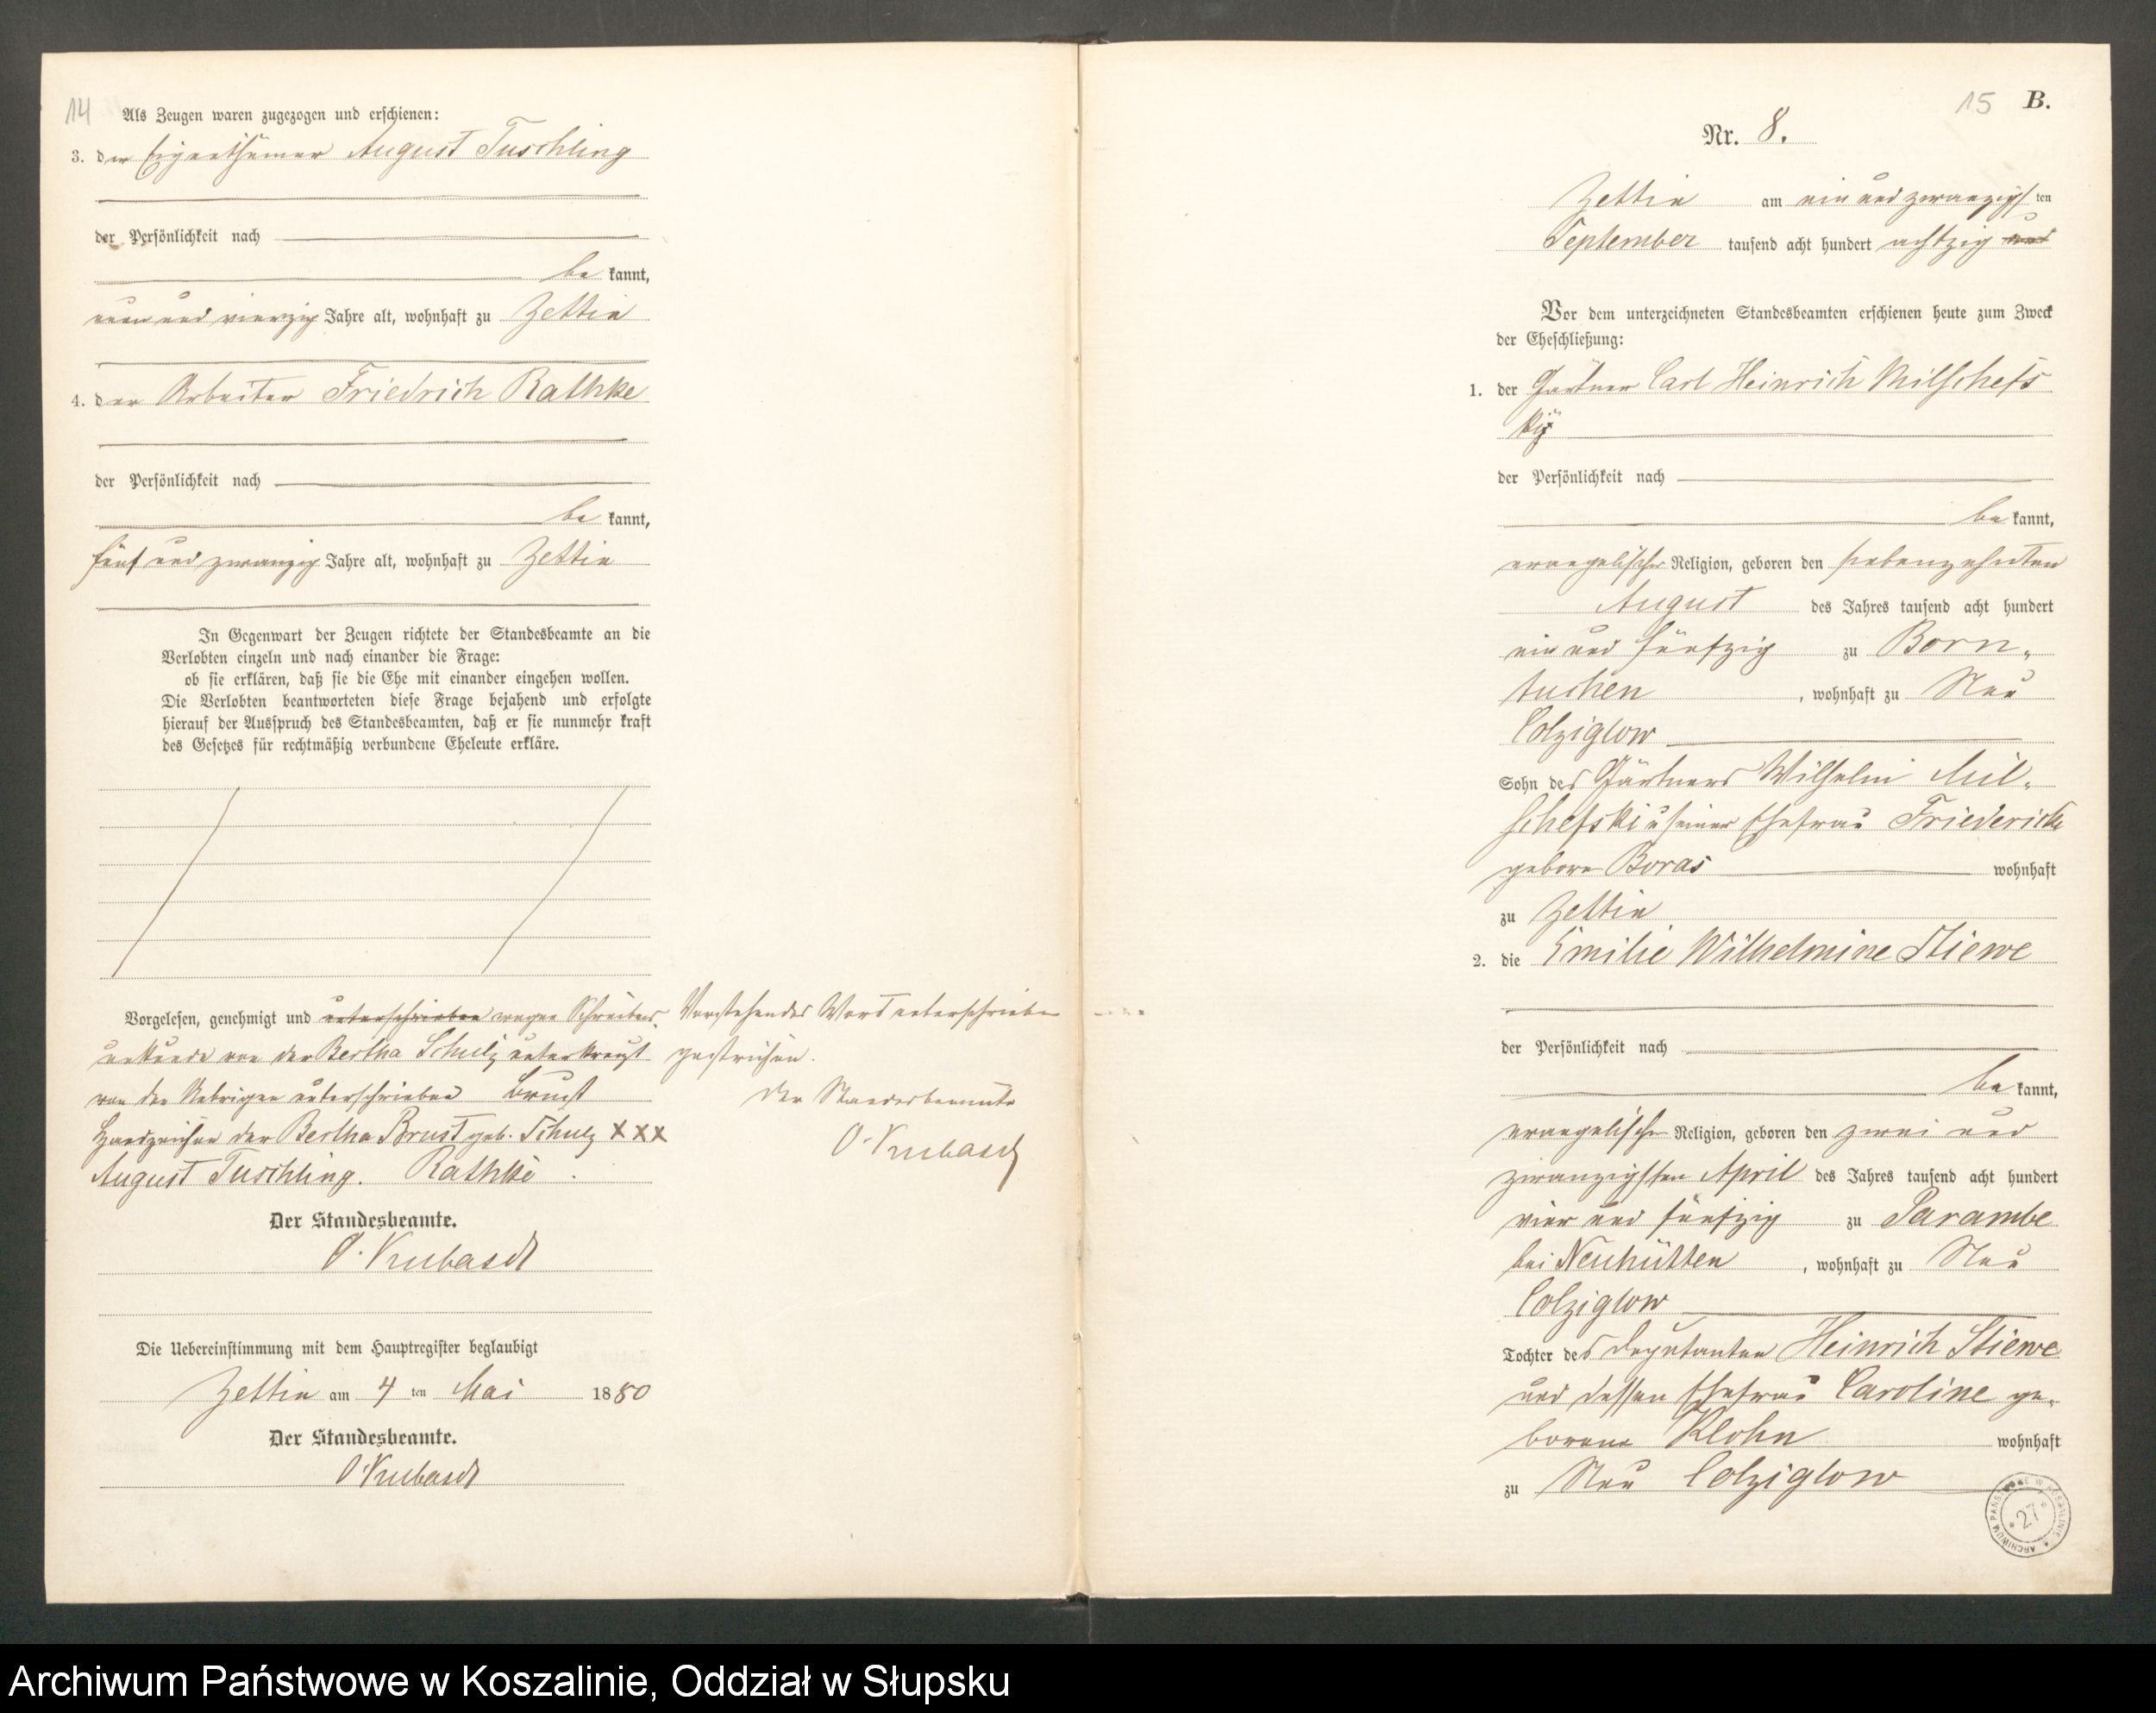 14
Als Zeugen waren zugezogen und erschienen:
3. der Eigenthümer August Tuschling
der Persönlichkeit nach
be kannt,
neun und vierzig Jahre alt, wohnhaft zu Zettin
4. der Arbeiter Friedrich Rathke
der Persönlichkeit nach
be kannt,
fünf und zwanzig Jahre alt, wohnhaft zu Zettin
In Gegenwart der Zeugen richtete der Standesbeamte an die
Verlobten einzeln und nach einander die Frage:
ob sie erklären, daß sie die Ehe mit einander eingehen wollen.
Die Verlobten beantworteten diese Frage bejahend und erfolgte
hierauf der Ausspruch des Standesbeamten, daß er sie nunmehr kraft
des Gesetzes für rechtmäßig verbundene Eheleute erkläre.
Vorgelesen, genehmigt und unterschrieben wegen Schreibens
unkunde von der Bertha Schulz unterkreuzt
von den Uebrigen unterschrieben Brust
Handzeichen der Bertha Brust geb. Schulz XXX
August Tuschling. Rathke
Der Standesbeamte.
O. Krubasch
Die Uebereinstimmung mit dem Hauptregister beglaubigt
Zettin am 4 ten Mai 1880
Der Standesbeamte.
O. Krubasch
Vorstehendes Wort unterschrieben
gestrichen.
Der Standesbeamte
O. Krubasch
15 B.
Nr. 8.
Zettin am ein und zwanzigs ten
September tausend acht hundert achtzig und
Vor dem unterzeichneten Standesbeamten erschienen heute zum Zweck
der Eheschließung:
1. der Gärtner Carl Heinrich Milschefs
ky
der Persönlichkeit nach
be kannt,
evangelischer Religion, geboren den siebenzehnten
August des Jahres tausend acht hundert
ein und fünfzig zu Born-
tuchen, wohnhaft zu Neu
Colziglow
Sohn des Gärtners Wilhelm Mil-
schefski u seiner Ehefrau Friedericke
geborne Boras wohnhaft
zu Zettin
2. die Emilie Wilhelmine Stiewe
der Persönlichkeit nach
be kannt,
evangelischer Religion, geboren den zwei und
zwanzigsten April des Jahres tausend acht hundert
vier und fünfzig zu Parambe
bei Neuhütten, wohnhaft zu Neu
Colziglow
Tochter des Deputanten Heinrich Stiewe
und dessen Ehefrau Caroline ge-
borene Klohn wohnhaft
zu Neu Colziglow
ARCHIWUM PAŃSTWOWE W KOSZALINIE
* 27 *
Archiwum Państwowe w Koszalinie, Oddział w Słupsku